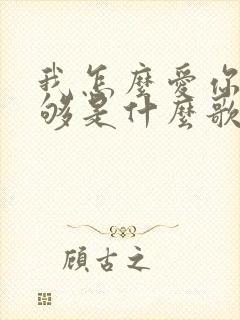 我怎麼愛你
够是什麼歌
顧古之